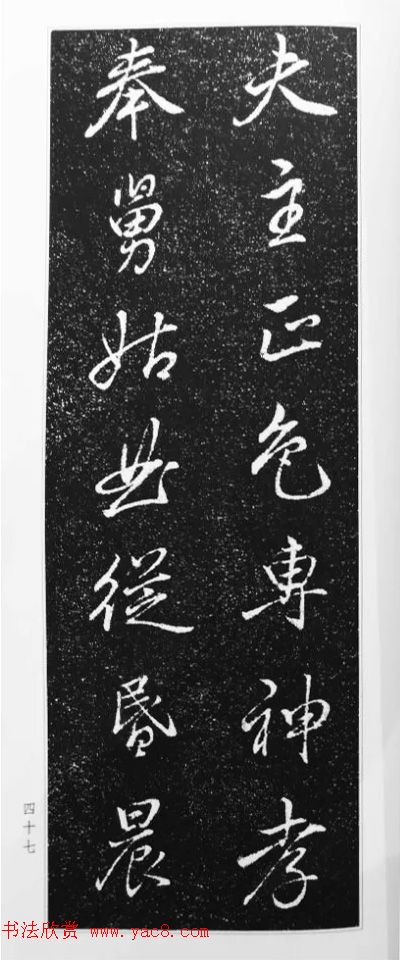 夫主正色專神孝
奉舅姑曲從昬晨
四十七
书法欣赏 www.yac8.com